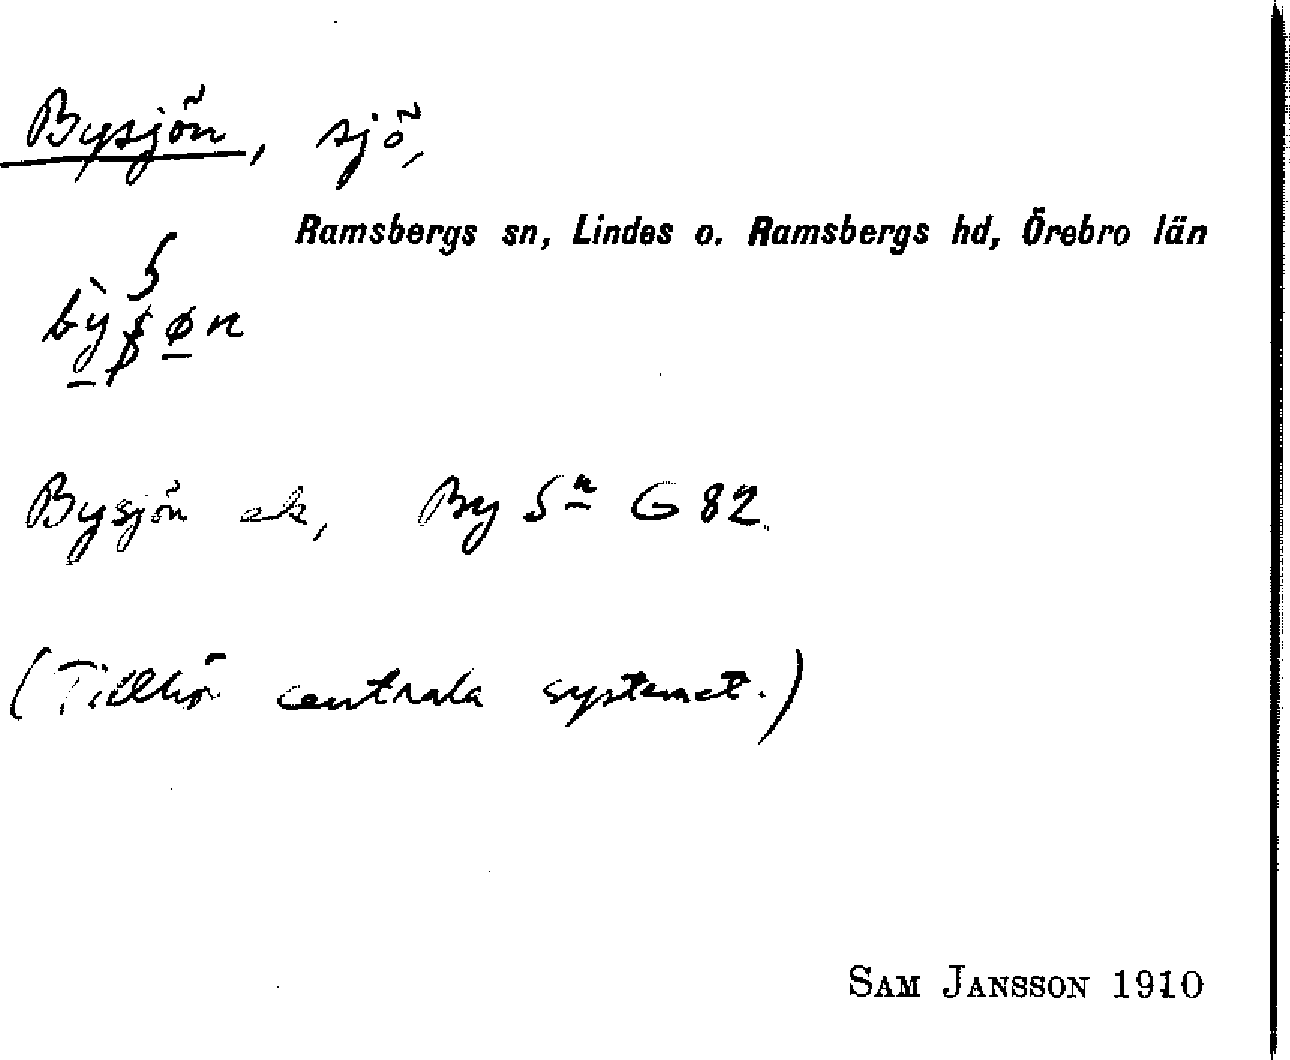 Bysjön, sjö,
Ramsbergs sn, Lindes o. Ramsbergs hd, Örebro län
Bysjön ek, By Sⁿ G 82
(Tillhör centrala systemet.)
SAM JANSSON 1910